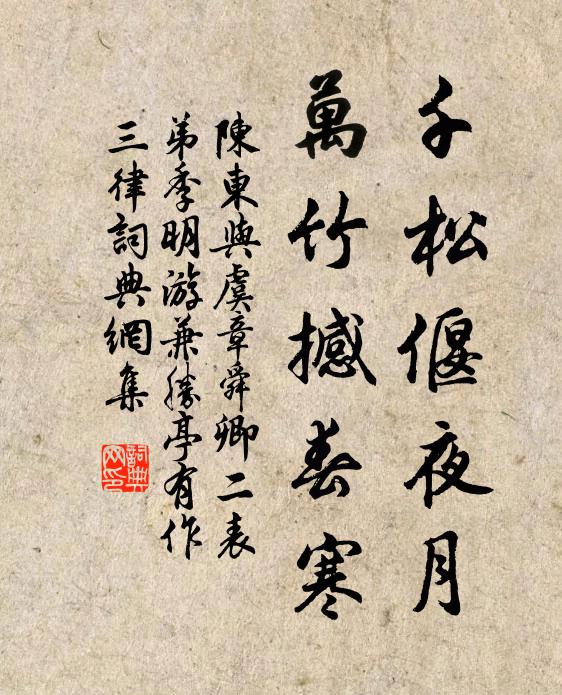 千松偃夜月
萬竹撼春寒
陳東與虞章舜卿二表
弟季明游兼勝亭有作
三律詞典網集
詞典网印